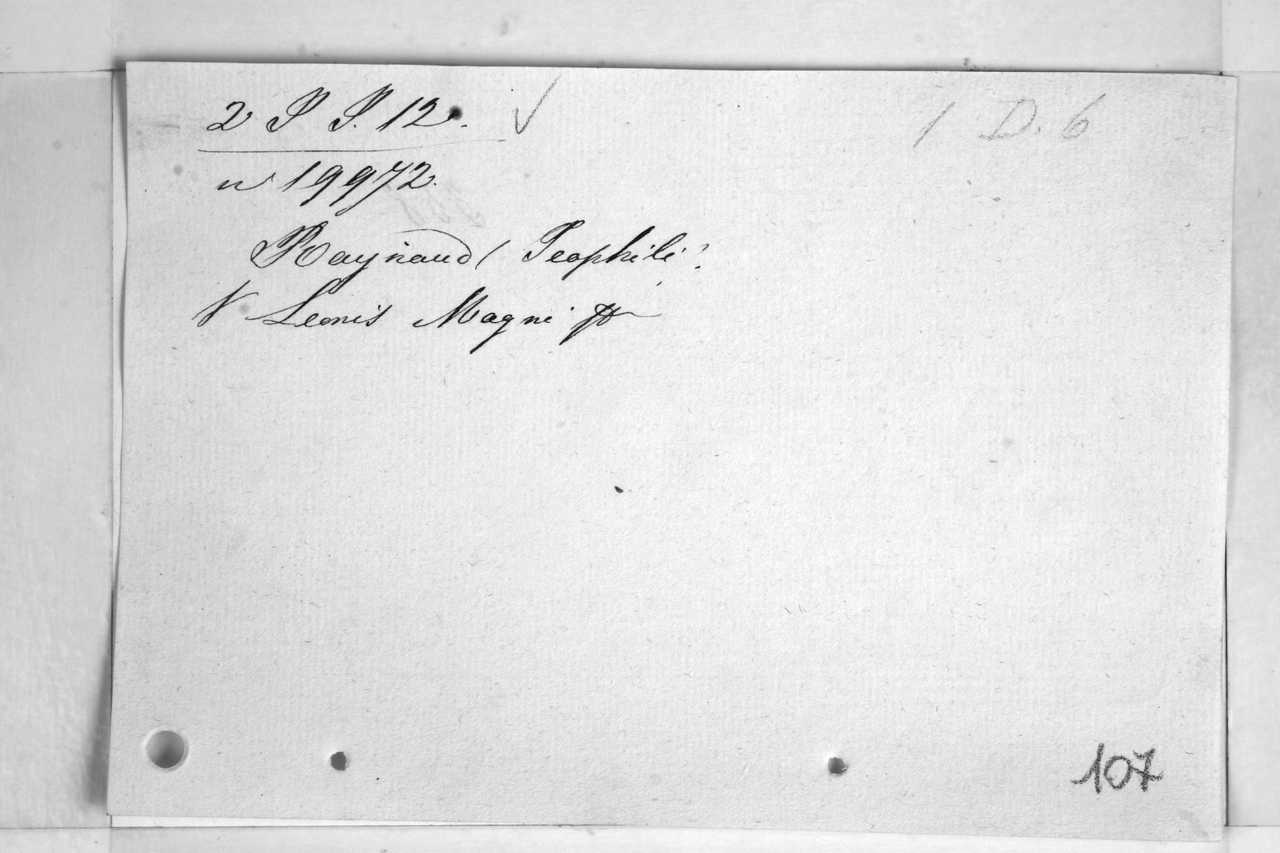 2 P P. 12. 1 D. 6
n 19972.
Raynaud / Teophili.
V Leonis Magni
107